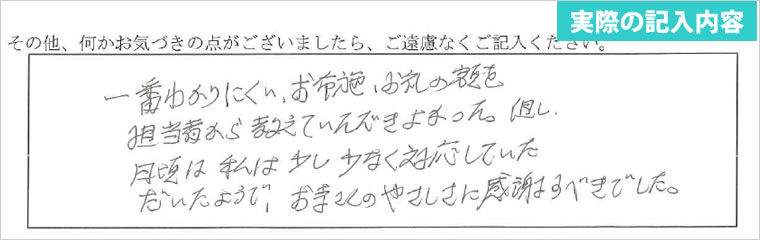 実際の記入内容
その他、何かお気づきの点がございましたら、ご遠慮なくご記入ください。
一番わかりにくい、お布施、お礼の額を
担当者から教えていただきよかった。但し、
日頃は私は少し少なく対応していた
だいたようで、お寺さんのやさしさに感謝すべきでした。